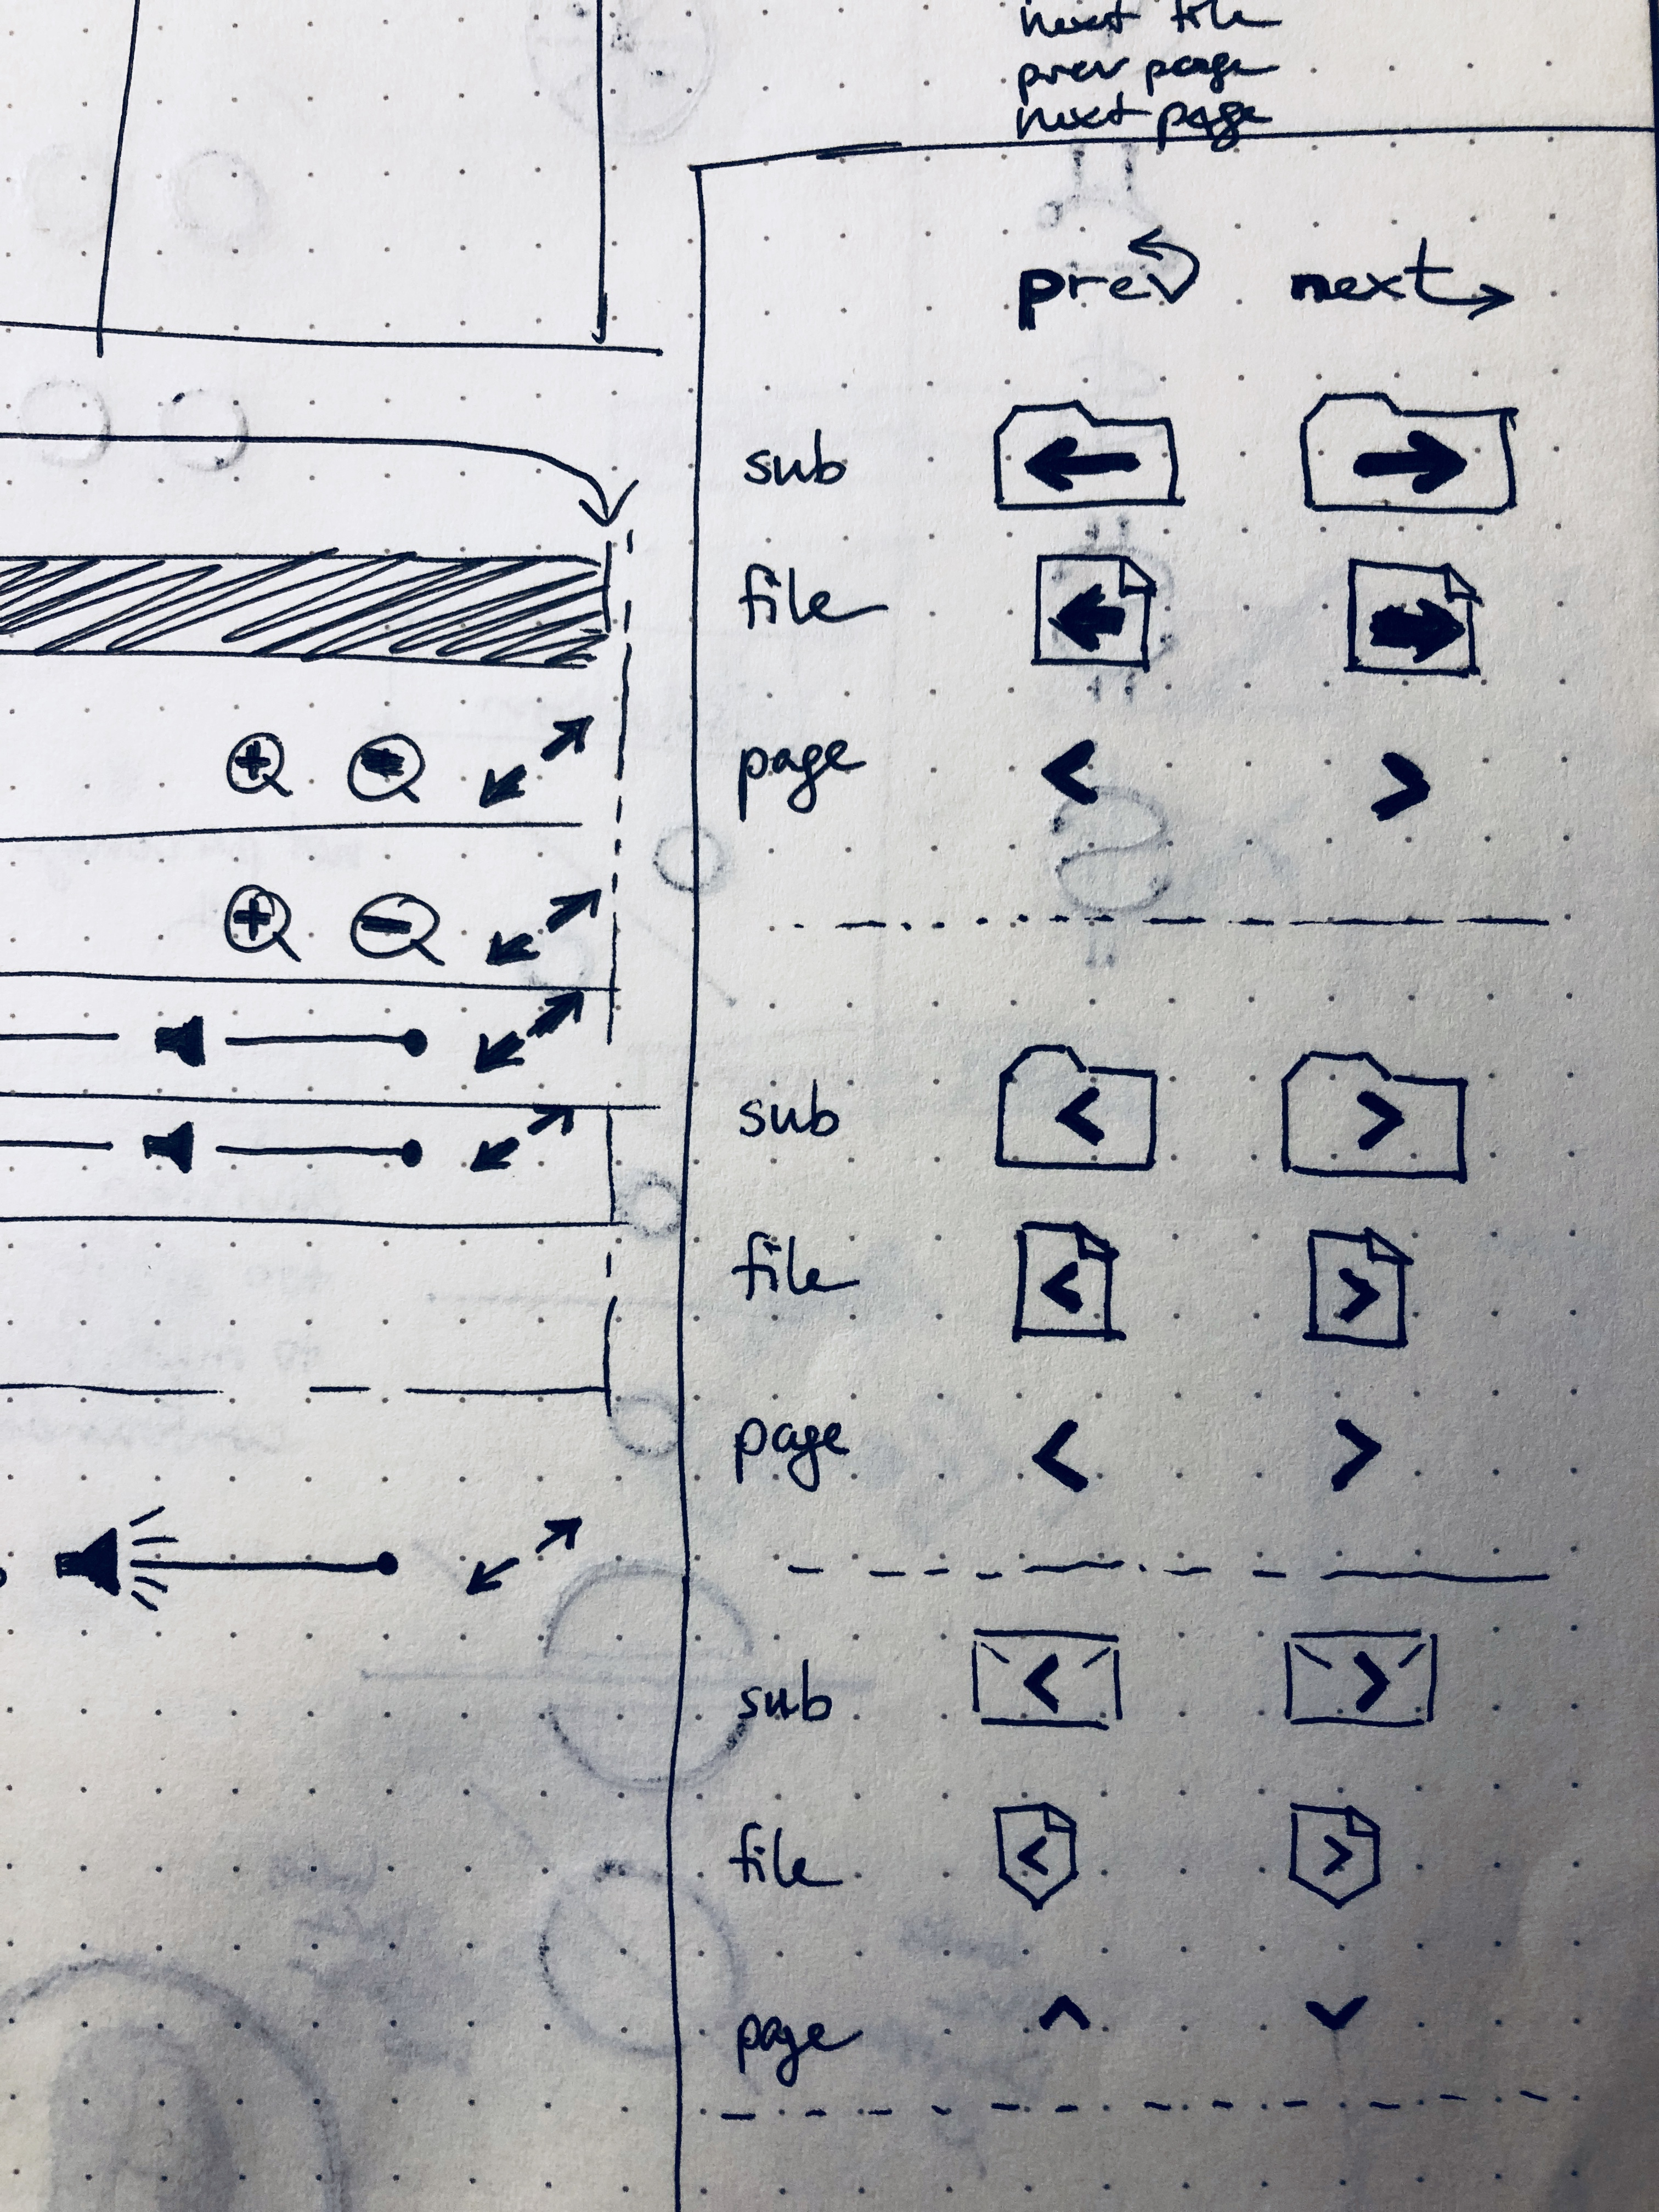 next file
prev page
next page
prev next
sub
file
page
sub
file
page
sub
file
page